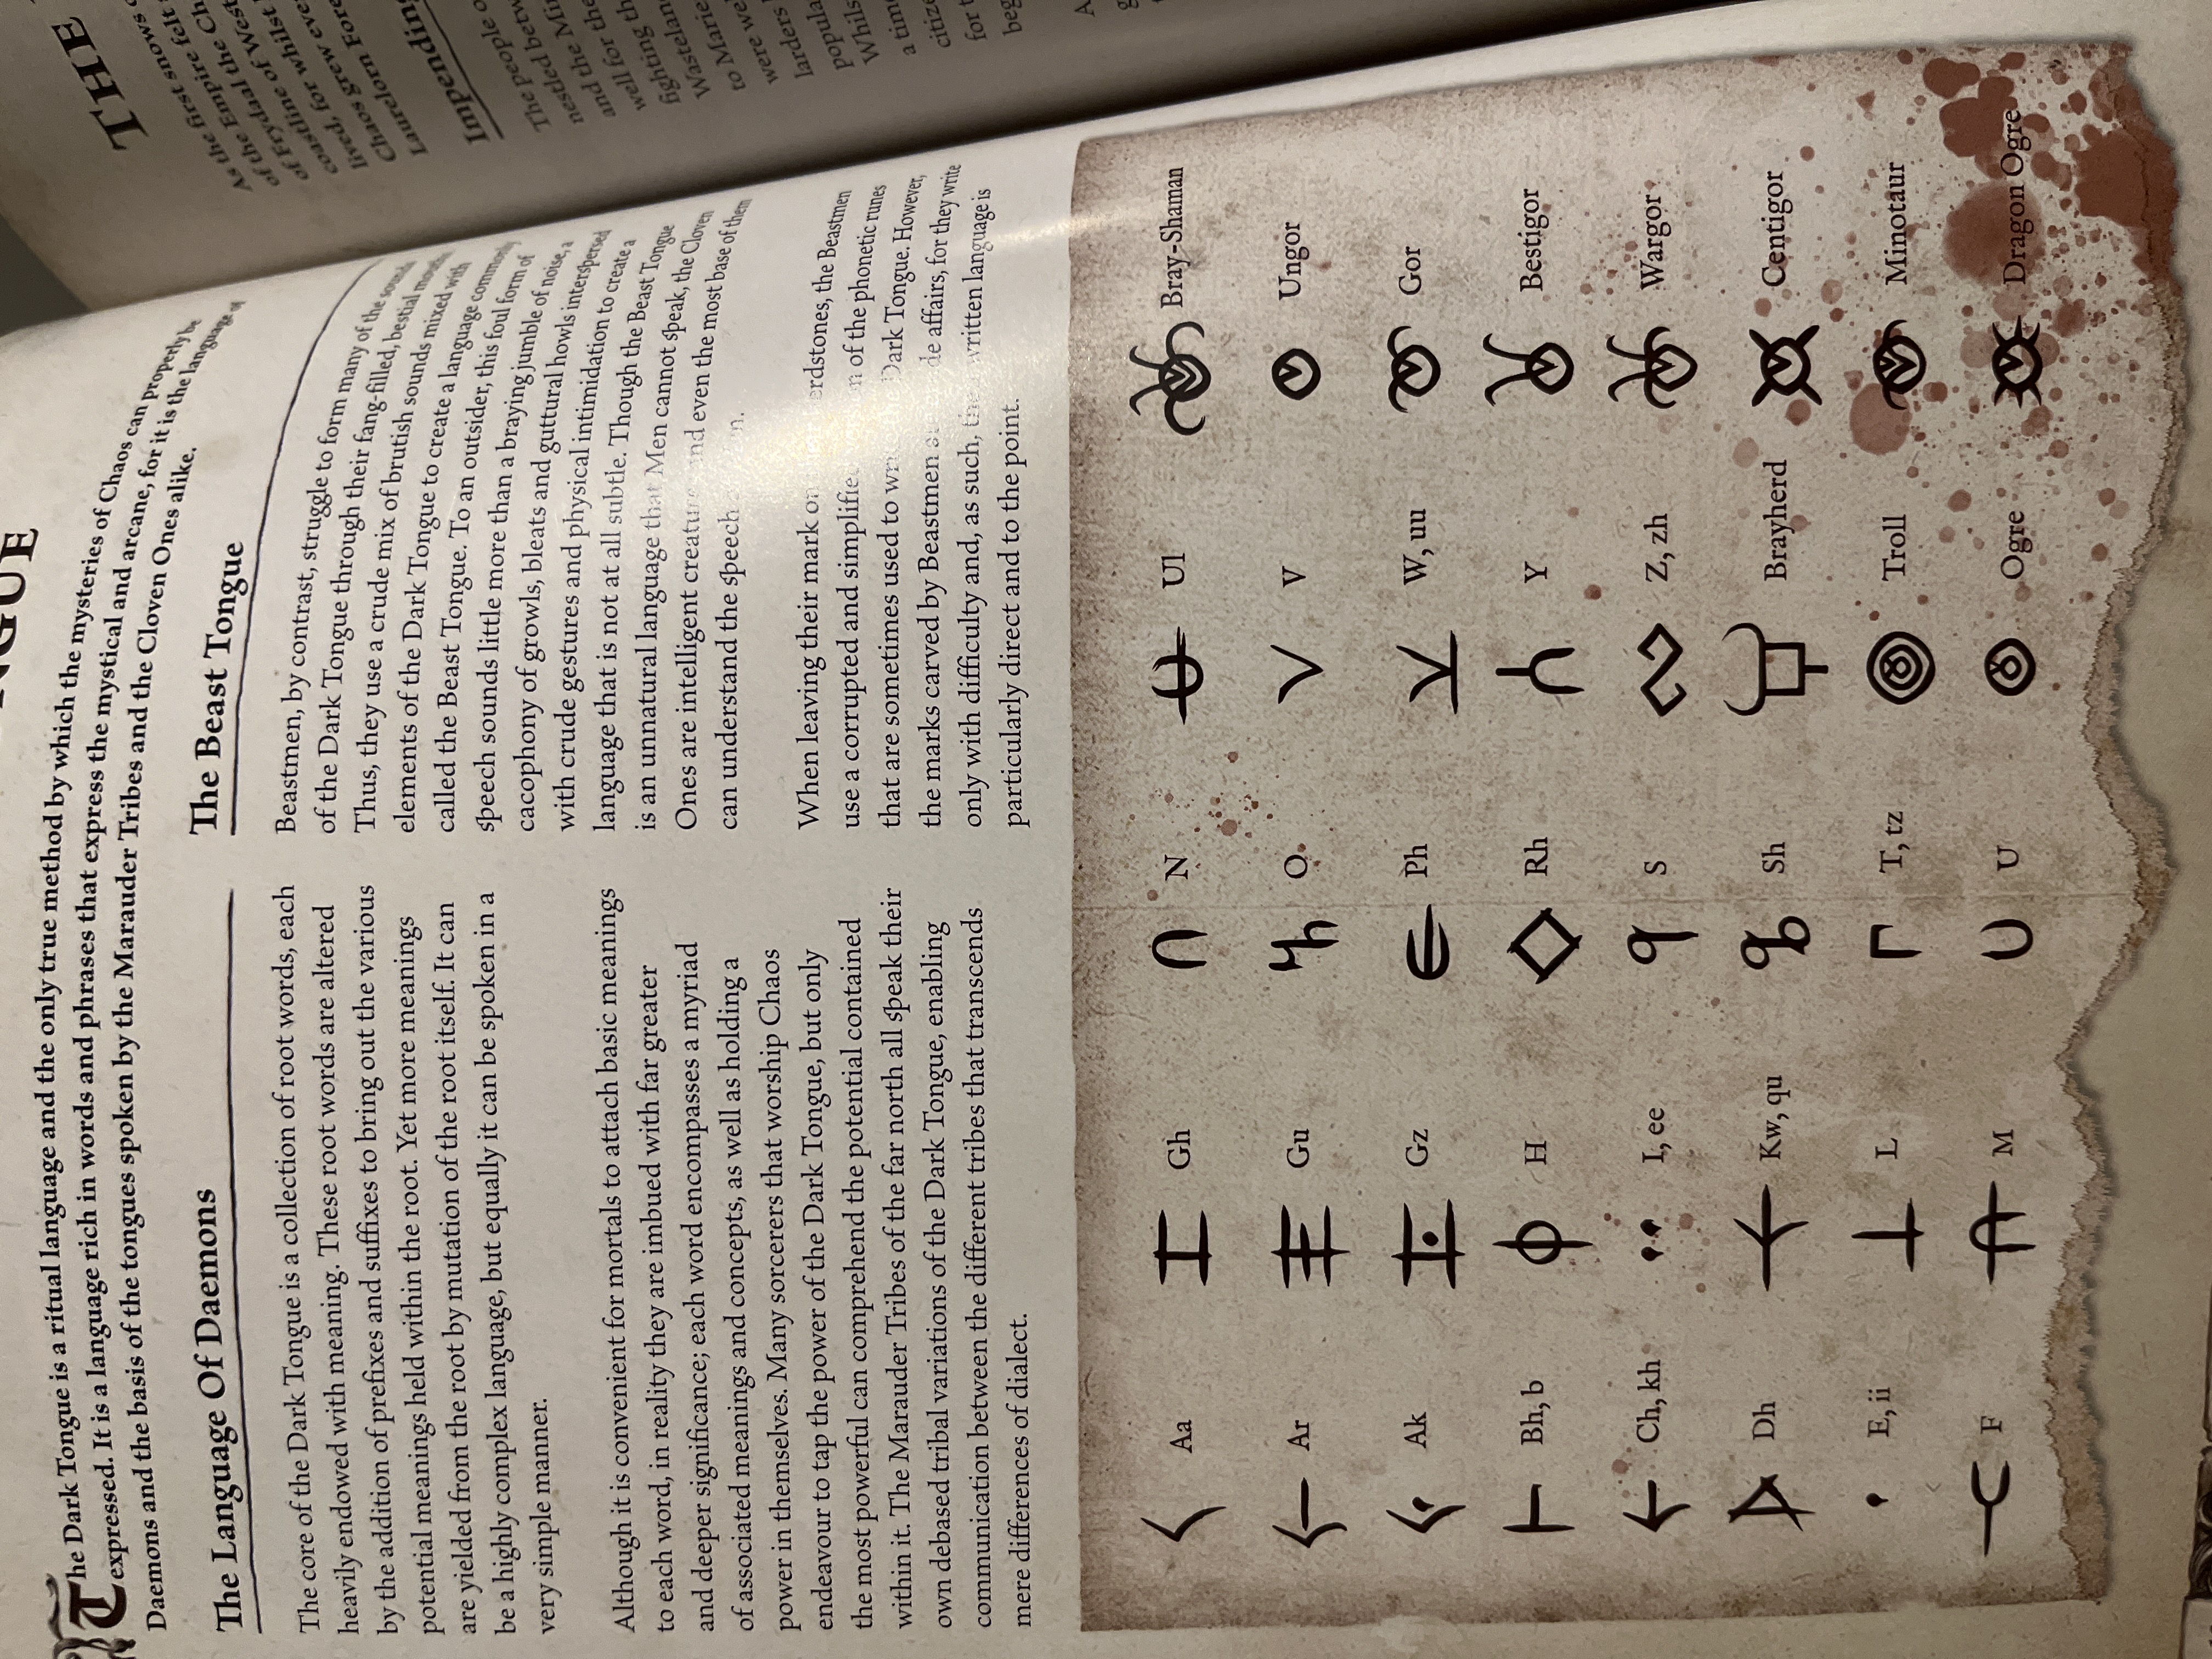 NGUE
The Dark Tongue is a ritual language and the only true method by which the mysteries of Chaos can properly be
expressed. It is a language rich in words and phrases that express the mystical and arcane, for it is the language of
Daemons and the basis of the tongues spoken by the Marauder Tribes and the Cloven Ones alike.
The Language Of Daemons
The core of the Dark Tongue is a collection of root words, each
heavily endowed with meaning. These root words are altered
by the addition of prefixes and suffixes to bring out the various
potential meanings held within the root. Yet more meanings
are yielded from the root by mutation of the root itself. It can
be a highly complex language, but equally it can be spoken in a
very simple manner.
Although it is convenient for mortals to attach basic meanings
to each word, in reality they are imbued with far greater
and deeper significance; each word encompasses a myriad
of associated meanings and concepts, as well as holding a
power in themselves. Many sorcerers that worship Chaos
endeavour to tap the power of the Dark Tongue, but only
the most powerful can comprehend the potential contained
within it. The Marauder Tribes of the far north all speak their
own debased tribal variations of the Dark Tongue, enabling
communication between the different tribes that transcends
mere differences of dialect.
The Beast Tongue
Beastmen, by contrast, struggle to form many of the sounds
of the Dark Tongue through their fang-filled, bestial mouths.
Thus, they use a crude mix of brutish sounds mixed with
elements of the Dark Tongue to create a language commonly
called the Beast Tongue. To an outsider, this foul form of
speech sounds little more than a braying jumble of noise, a
cacophony of growls, bleats and guttural howls interspersed
with crude gestures and physical intimidation to create a
language that is not at all subtle. Though the Beast Tongue
is an unnatural language that Men cannot speak, the Cloven
Ones are intelligent creatures and even the most base of them
can understand the speech
When leaving their mark on erdstones, the Beastmen
use a corrupted and simplified of the phonetic runes
that are sometimes used to Dark Tongue. However,
the marks carved by Beastmen affairs, for they write
only with difficulty and, as such, the written language is
particularly direct and to the point.
Aa Gh N Ul Bray-Shaman
Ar Gu O V Ungor
Ak Gz Ph W, uu Gor
Bh, b H Rh Y Bestigor
Ch, kh I, ee S Z, zh Wargor
Dh Kw, qu Sh Brayherd Centigor
E, ii L T, tz Troll Minotaur
F M U Ogre Dragon Ogre
THE
As the first snows
of the Empire felt
As the Empire the Ch
of Frydaal the
coastline of West
lived, for whilst
Chaos grew eve
Laurelorn Fore
Impending
The people o
nestled betw
and the Mi
well for the
fighting th
Wastelan
to Marie
were we
larders
popula
Whils
a tim
citize
for t
beg
A
g